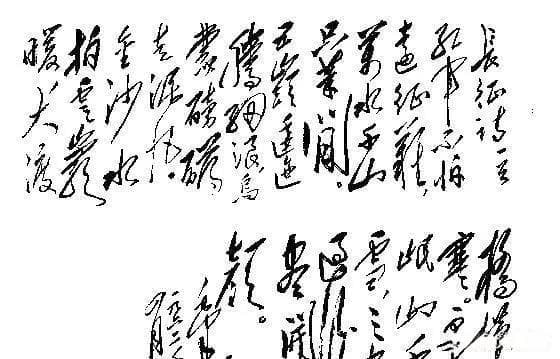 長征詩一首
紅軍不怕
遠征難,
萬水千山
只等閒。
五嶺逶迤
騰細浪,烏
蒙磅礴
走泥丸。
金沙水
拍雲巖
暖,大渡
橋橫
寒。更
岷山千
雪,三
過後
盡開
顏。